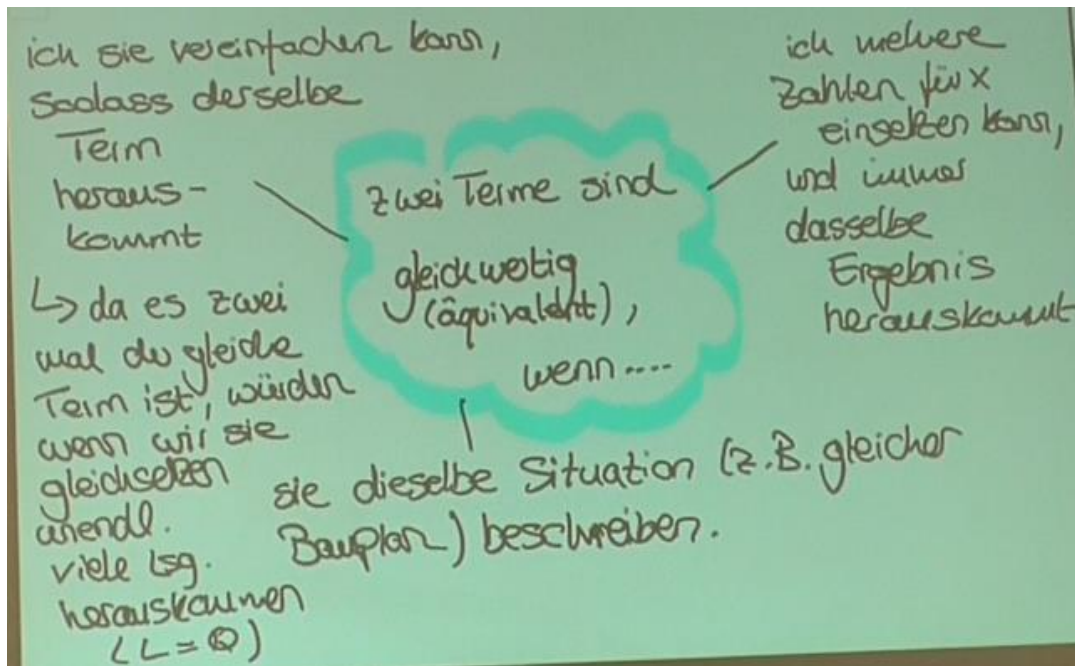 ich sie vereinfachen kann,
sodass derselbe
Term
heraus-
kommt
↳ da es zwei
mal der gleiche
Term ist, würden
wenn wir sie
gleichsetzen
unendl.
viele Lsg.
herauskommen
(L=ℚ)
zwei Terme sind
gleichwertig
(äquivalent),
wenn....
ich mehrere
Zahlen für x
einsetzen kann,
und immer
dasselbe
Ergebnis
herauskommt
sie dieselbe Situation (z.B. gleicher
Bauplan) beschreiben.